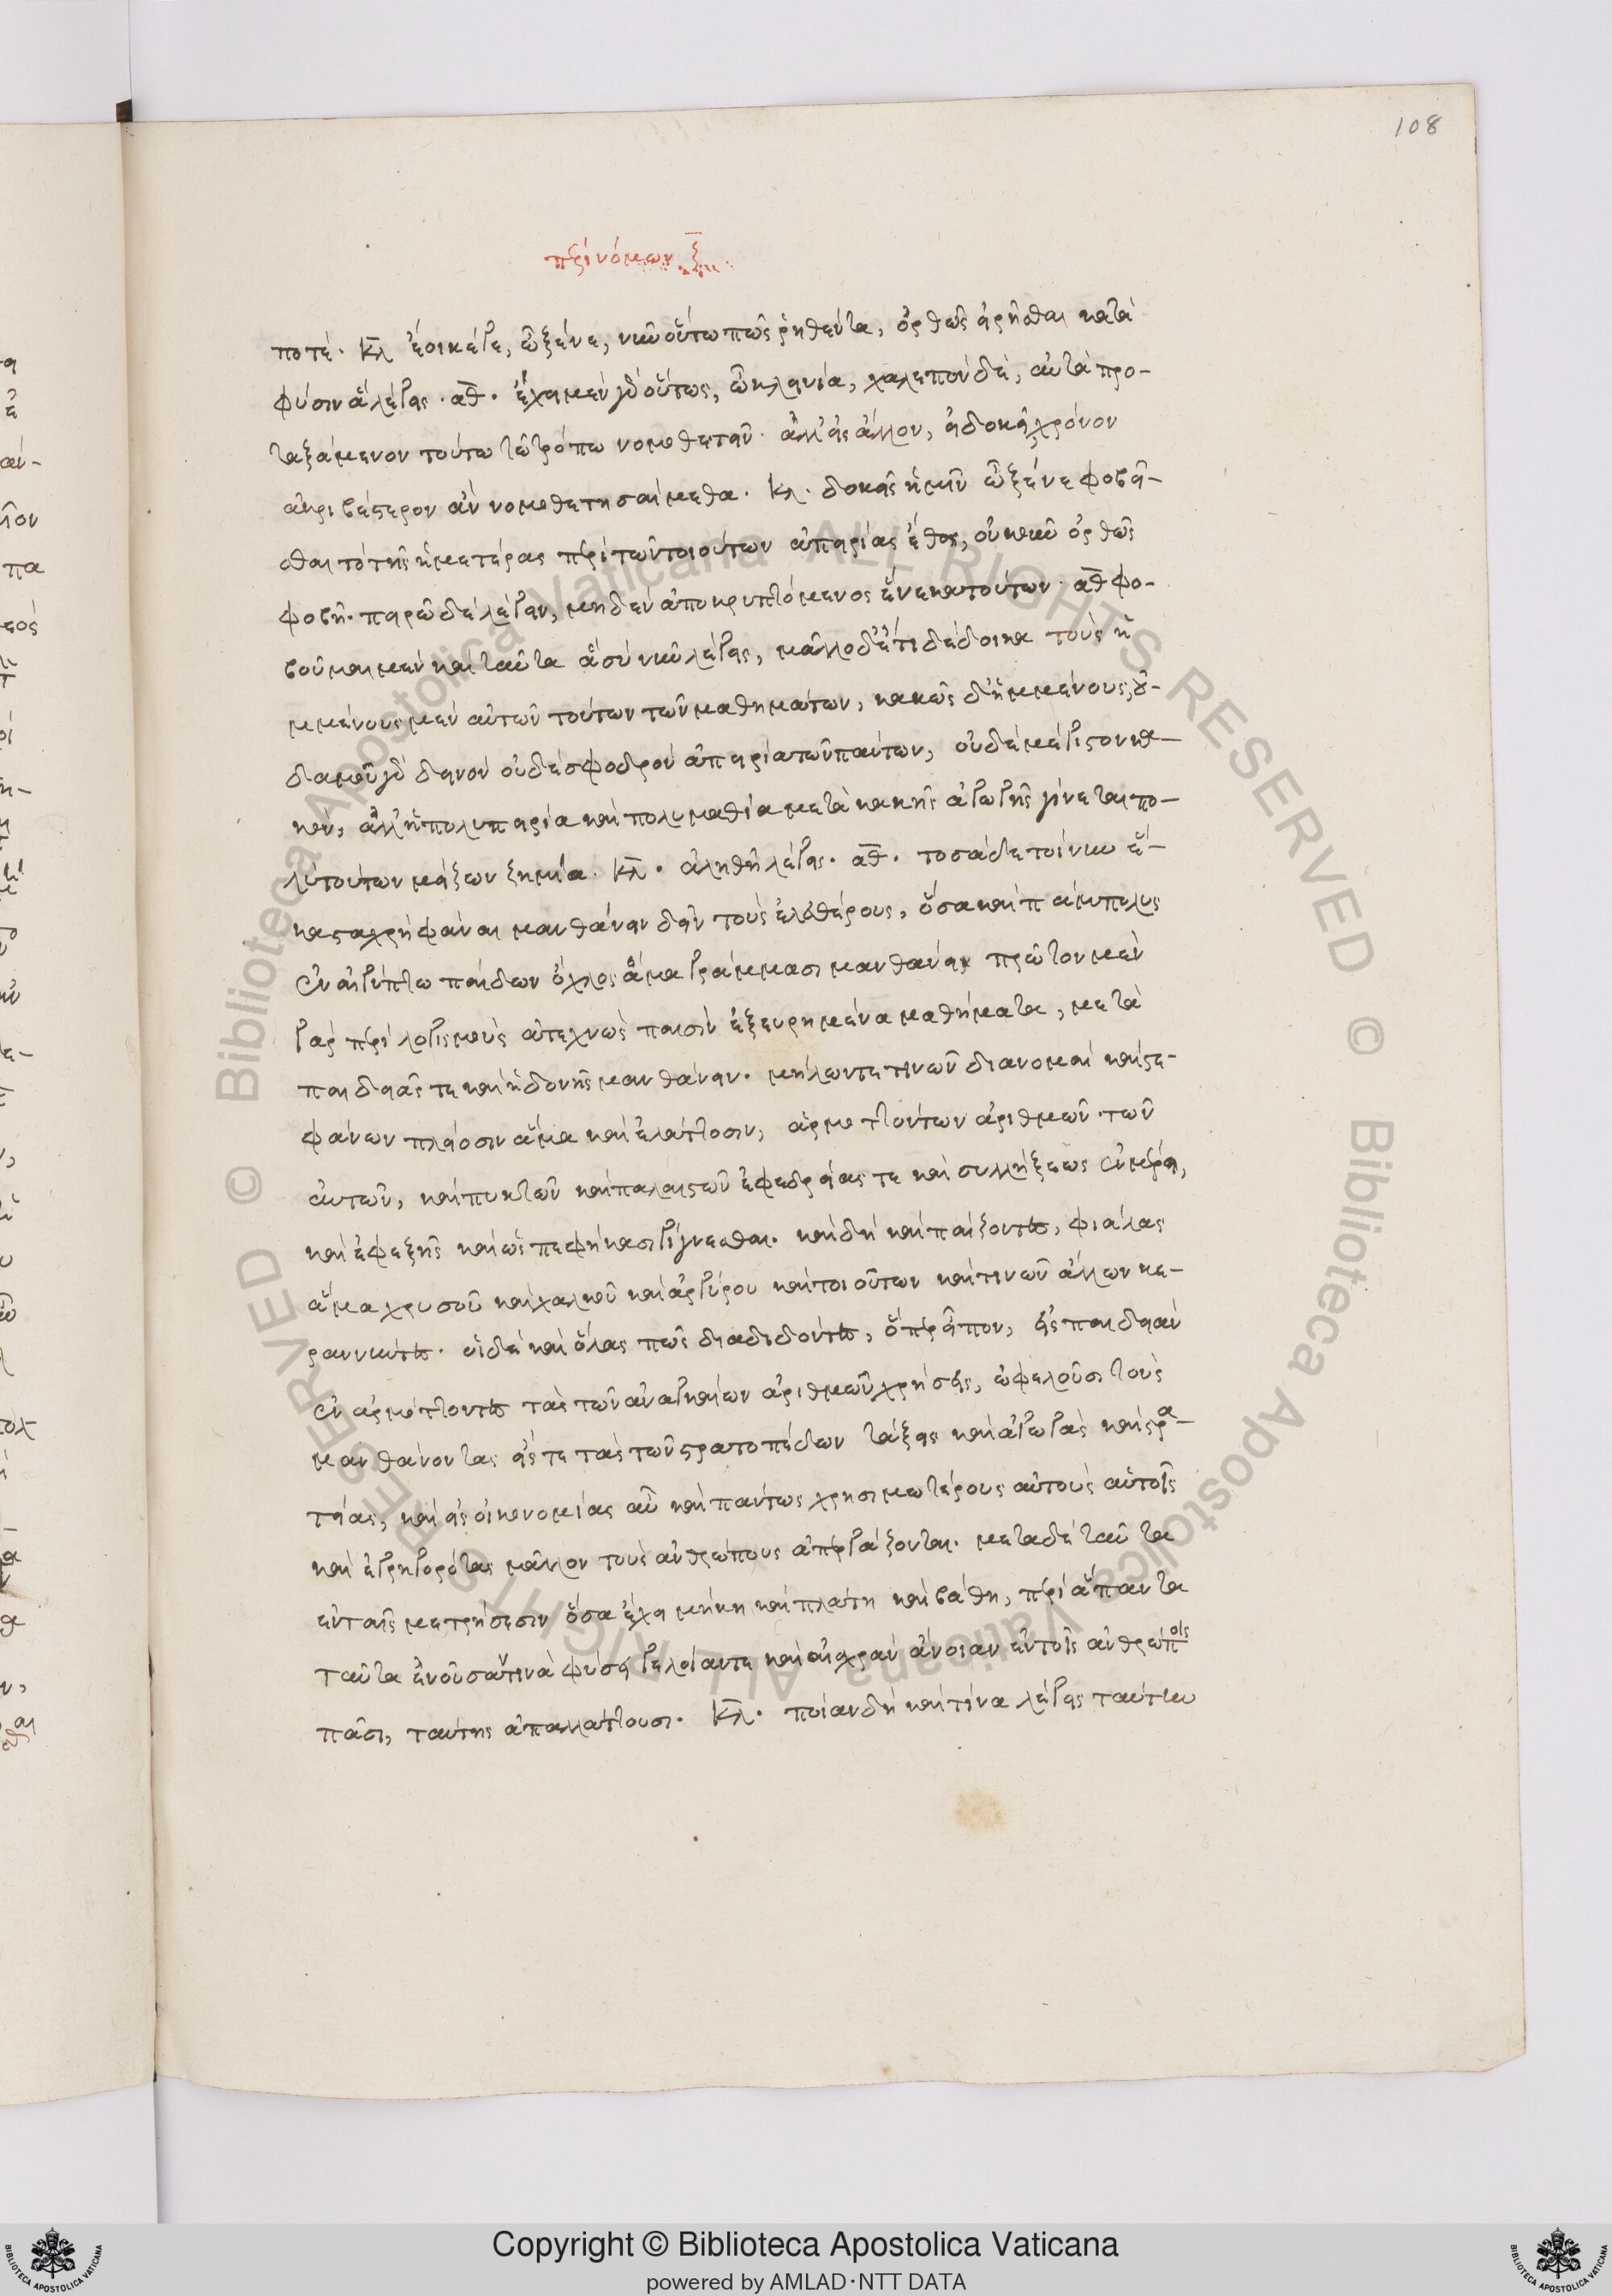 108
περὶ νόμων ζ
ποτέ. κλ ἔοικέ γε, ὦ ξένε, νῦν οὕτω πως ῥηθέντα, ὀρθῶς εἰρῆσθαι κατὰ
φύσιν ἃ λέγεις. αθ. ἔχει μὲν γὰρ οὕτως, ὦ κλεινία, χαλεπὸν δὲ, αὐτὰ προ-
ταξάμενον τούτω τῶ τρόπω νομοθετεῖν. ἀλλ' εἰς ἄλλον, εἰ δοκεῖ, χρόνον
ἀκριβέστερον ἂν νομοθετησαίμεθα. κλ. δοκεῖς ἡμῖν ὦ ξένε φοβεῖ-
σθαι τὸ τῆς ἡμετέρας περὶ τῶν τοιούτων ἀπειρίας ἔθος, οὔκουν ὀρθῶς
φοβῆ. πειρῶ δὲ λέγειν, μηδὲν ἀποκρυπτόμενος ἕνεκα τούτων. αθ φο-
βοῦμαι μὲν καὶ ταῦτα ἃ σὺ νῦν λέγεις, μᾶλλον δ' ἔτι δέδοικα τοὺς ἡ-
μμένους μὲν αὐτῶν τούτων τῶν μαθημάτων, κακῶς δ' ἡμμένους, οὐ-
δαμοῦ γὰρ δεινὸν οὐδὲ σφοδρὸν ἀπειρία τῶν πάντων, οὐδὲ μέγιστον κα-
κὸν, ἀλλ' ἡ πολυπειρία καὶ πολυμαθία μετὰ κακῆς ἀγωγῆς γίνεται πο-
λὺ τούτων μείζων ζημία. κλ. ἀληθῆ λέγεις. αθ. τοσάδε τοίνυν ἕ-
καστα χρὴ φάναι μανθάνειν δεῖν τοὺς ἐλευθέρους, ὅσα καὶ πάμπολυς
ἐν αἰγύπτω παίδων ὄχλος ἅμα γράμμασι μανθάνει. πρῶτον μὲν
γὰρ περὶ λογισμοὺς ἀτεχνῶς παισὶν ἐξευρημένα μαθήματα, μετὰ
παιδειᾶς τε καὶ ἡδονῆς μανθάνειν. μήλων τε τινῶν διανομαὶ καὶ στε-
φάνων πλείοσιν ἅμα καὶ ἐλάττοσιν, ἁρμοττόντων ἀριθμῶν τῶν
αὐτῶν, καὶ πυκτῶν καὶ παλαιστῶν ἐφεδρείας τε καὶ συλλήξεως ἐν μέρει,
καὶ ἐφεξῆς καὶ ὡς πεφήκασι γίγνεσθαι. καὶ δὴ καὶ παίζοντες, φιάλας
ἅμα χρυσοῦ καὶ χαλκοῦ καὶ ἀργύρου καὶ τοιούτων καὶ τινῶν ἄλλων κε-
ραννύντες. οἱ δὲ καὶ ὅλας πως διαδιδόντες, ὅπερ εἶπον, εἰς παιδειὰν
ἐναρμόττοντες τὰς τῶν ἀναγκαίων ἀριθμῶν χρήσεις, ὠφελοῦσι τοὺς
μανθάνοντας εἴς τε τὰς τῶν στρατοπέδων τάξεις καὶ ἀγωγὰς καὶ στρα-
τείας, καὶ εἰς οἰκονομίας αὖ καὶ πάντως χρησιμωτέρους αὐτοὺς αὑτοῖς
καὶ ἐγρηγορότας μᾶλλον τοὺς ἀνθρώπους ἀπεργάζονται. μετὰ δὲ ταῦτα
ἐν ταῖς μετρήσεσιν ὅσα ἔχει μήκη καὶ πλάτη καὶ βάθη, περὶ ἅπαντα
ταῦτα ἐνοῦσάν τινα φύσει γελοίαν τε καὶ αἰσχρὰν ἄνοιαν ἐν τοῖς ἀνθρώποις
πᾶσι, ταύτης ἀπαλλάττουσι. κλ. ποίαν δὴ καὶ τίνα λέγεις ταύτην
Copyright © Biblioteca Apostolica Vaticana
powered by AMLAD·NTT DATA